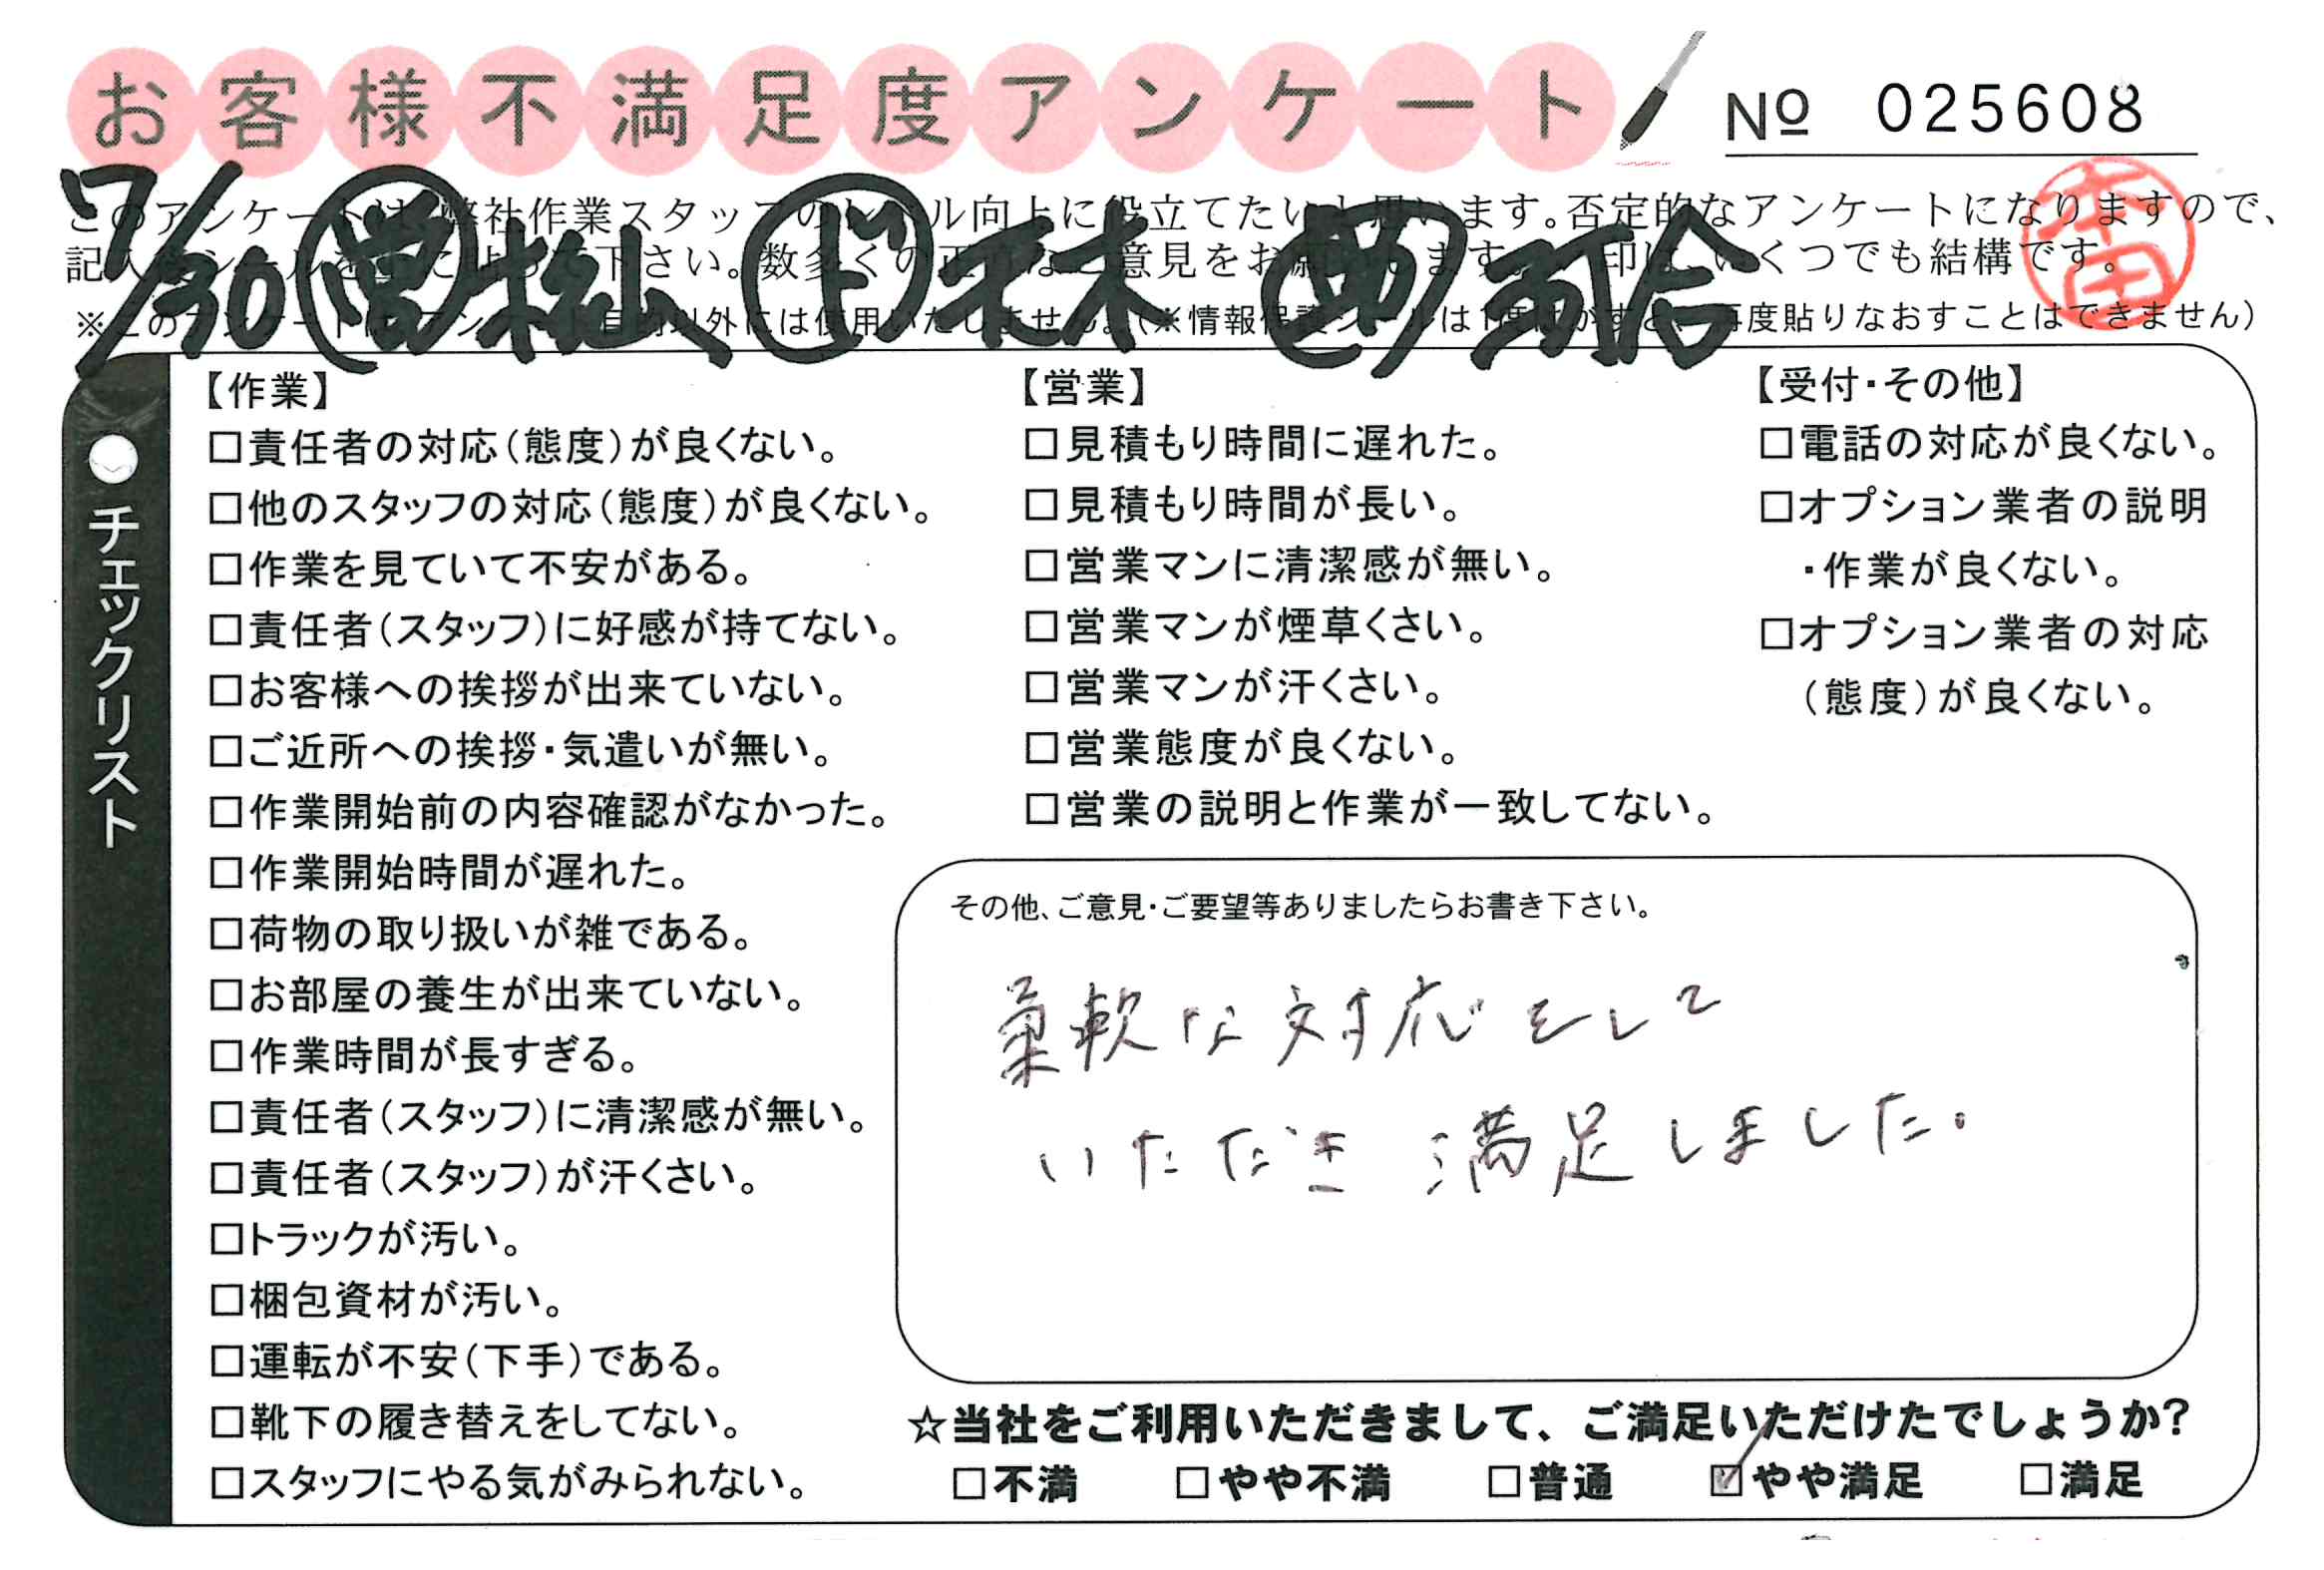 お客様不満足度アンケート
Nº 025608
7/30 営 松山 ド 禾木 助 河合
このアンケートは、弊社作業スタッフのレベル向上に役立てたいと思います。否定的なアンケートになりますので、
記入後シールを 貼って下さい。数多くの正直なご意見をお願いします。 印は、いくつでも結構です。
※このアンケートは、アンケート目的以外には使用いたしません。(※情報保護シールは1度はがすと、再度貼りなおすことはできません)
●チェックリスト
【作業】
□責任者の対応(態度)が良くない。
□他のスタッフの対応(態度)が良くない。
□作業を見ていて不安がある。
□責任者(スタッフ)に好感が持てない。
□お客様への挨拶が出来ていない。
□ご近所への挨拶・気遣いが無い。
□作業開始前の内容確認がなかった。
□作業開始時間が遅れた。
□荷物の取り扱いが雑である。
□お部屋の養生が出来ていない。
□作業時間が長すぎる。
□責任者(スタッフ)に清潔感が無い。
□責任者(スタッフ)が汗くさい。
□トラックが汚い。
□梱包資材が汚い。
□運転が不安(下手)である。
□靴下の履き替えをしてない。
□スタッフにやる気がみられない。
【営業】
□見積もり時間に遅れた。
□見積もり時間が長い。
□営業マンに清潔感が無い。
□営業マンが煙草くさい。
□営業マンが汗くさい。
□営業態度が良くない。
□営業の説明と作業が一致してない。
【受付・その他】
□電話の対応が良くない。
□オプション業者の説明
・作業が良くない。
□オプション業者の対応
(態度)が良くない。
その他、ご意見・ご要望等ありましたらお書き下さい。
柔軟な対応をして
いただき満足しました。
☆当社をご利用いただきまして、ご満足いただけたでしょうか?
□不満 □やや不満 □普通 ☑やや満足 □満足